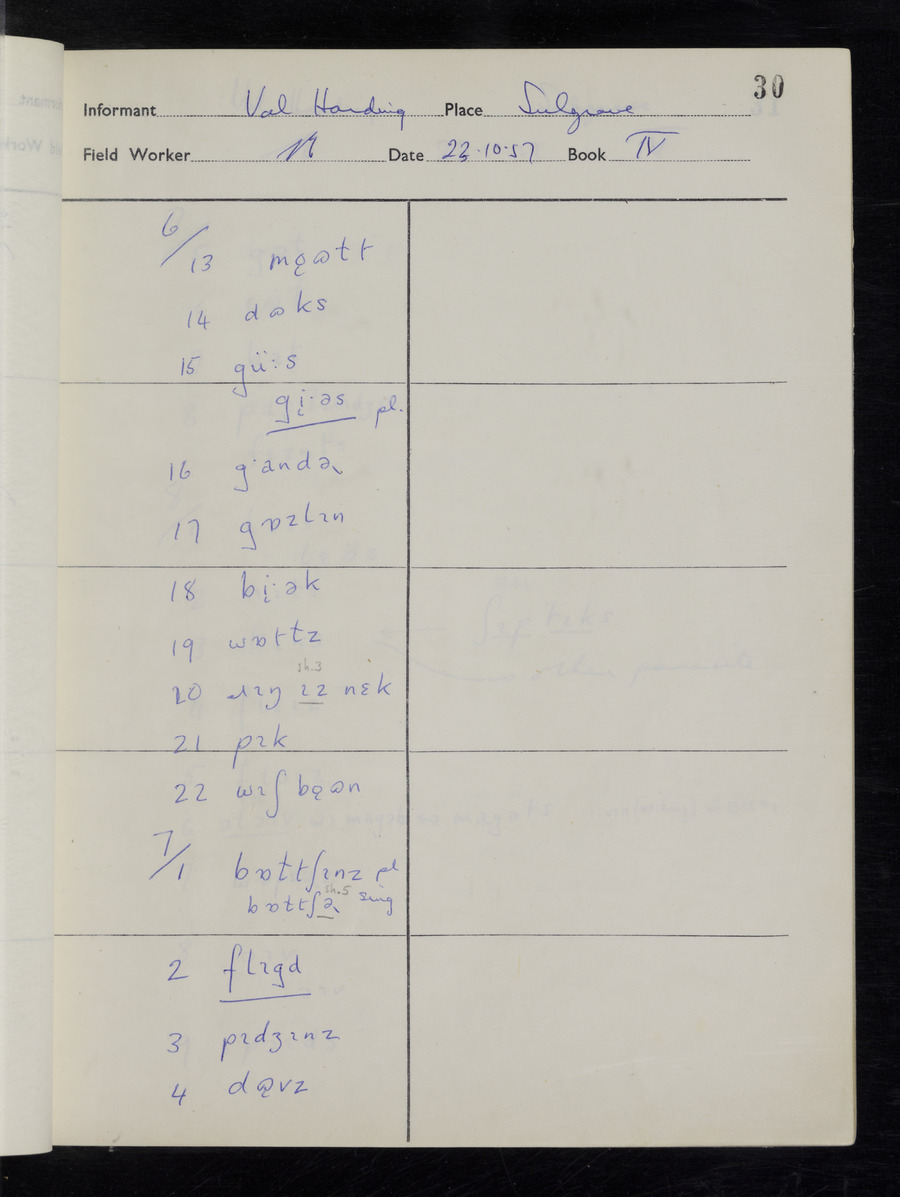 30
Informant Val Harding Place Sulgrave
Field Worker Date 22.10.57 Book IV
6/13 mǫɷtt
14 dɷks
15 gü:s
gį·əs pl.
16 g·andə
17 gɒzlɪn
18 bį·ək
19 wɒttz
20 ɹɪŋ ɪz nɛk
sh.3
21 pɪk
22 wɪʃ bǫɷn
7/1 bɒttʃɪnz pl
bɒttʃə sing
sh.5
2 flɪgd
3 pɪdʒɪnz
4 dɷvz